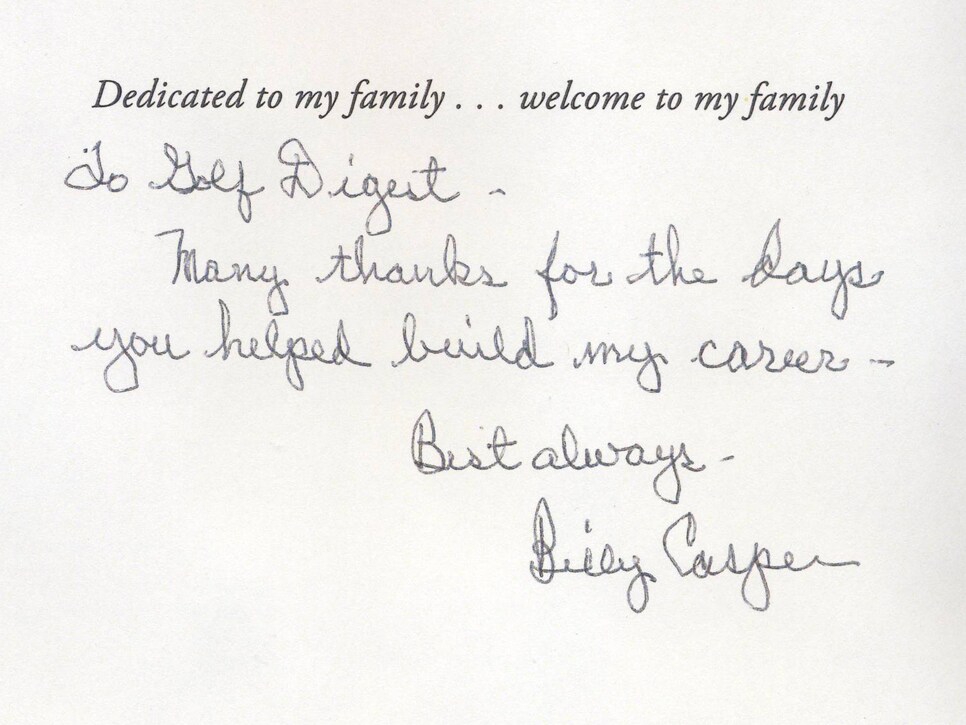 Dedicated to my family . . . welcome to my family
To Golf Digest -
Many thanks for the days
you helped build my career -
Best always -
Billy Casper